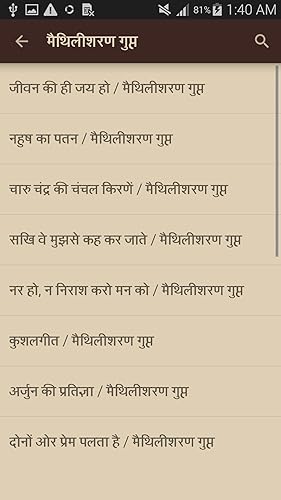 81% 1:40 AM
मैथिलीशरण गुप्त
जीवन की ही जय हो / मैथिलीशरण गुप्त
नहुष का पतन / मैथिलीशरण गुप्त
चारु चंद्र की चंचल किरणें / मैथिलीशरण गुप्त
सखि वे मुझसे कह कर जाते / मैथिलीशरण गुप्त
नर हो, न निराश करो मन को / मैथिलीशरण गुप्त
कुशलगीत / मैथिलीशरण गुप्त
अर्जुन की प्रतिज्ञा / मैथिलीशरण गुप्त
दोनों ओर प्रेम पलता है / मैथिलीशरण गुप्त